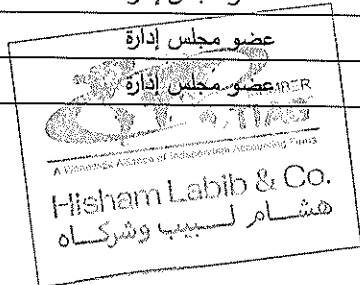 عضو مجلس إدارة
عضو مجلس إدارة
MEMBER
TIAG
A Worldwide Alliance of Independent Accounting Firms
Hisham Labib & Co.
هشام لبيب وشركاه